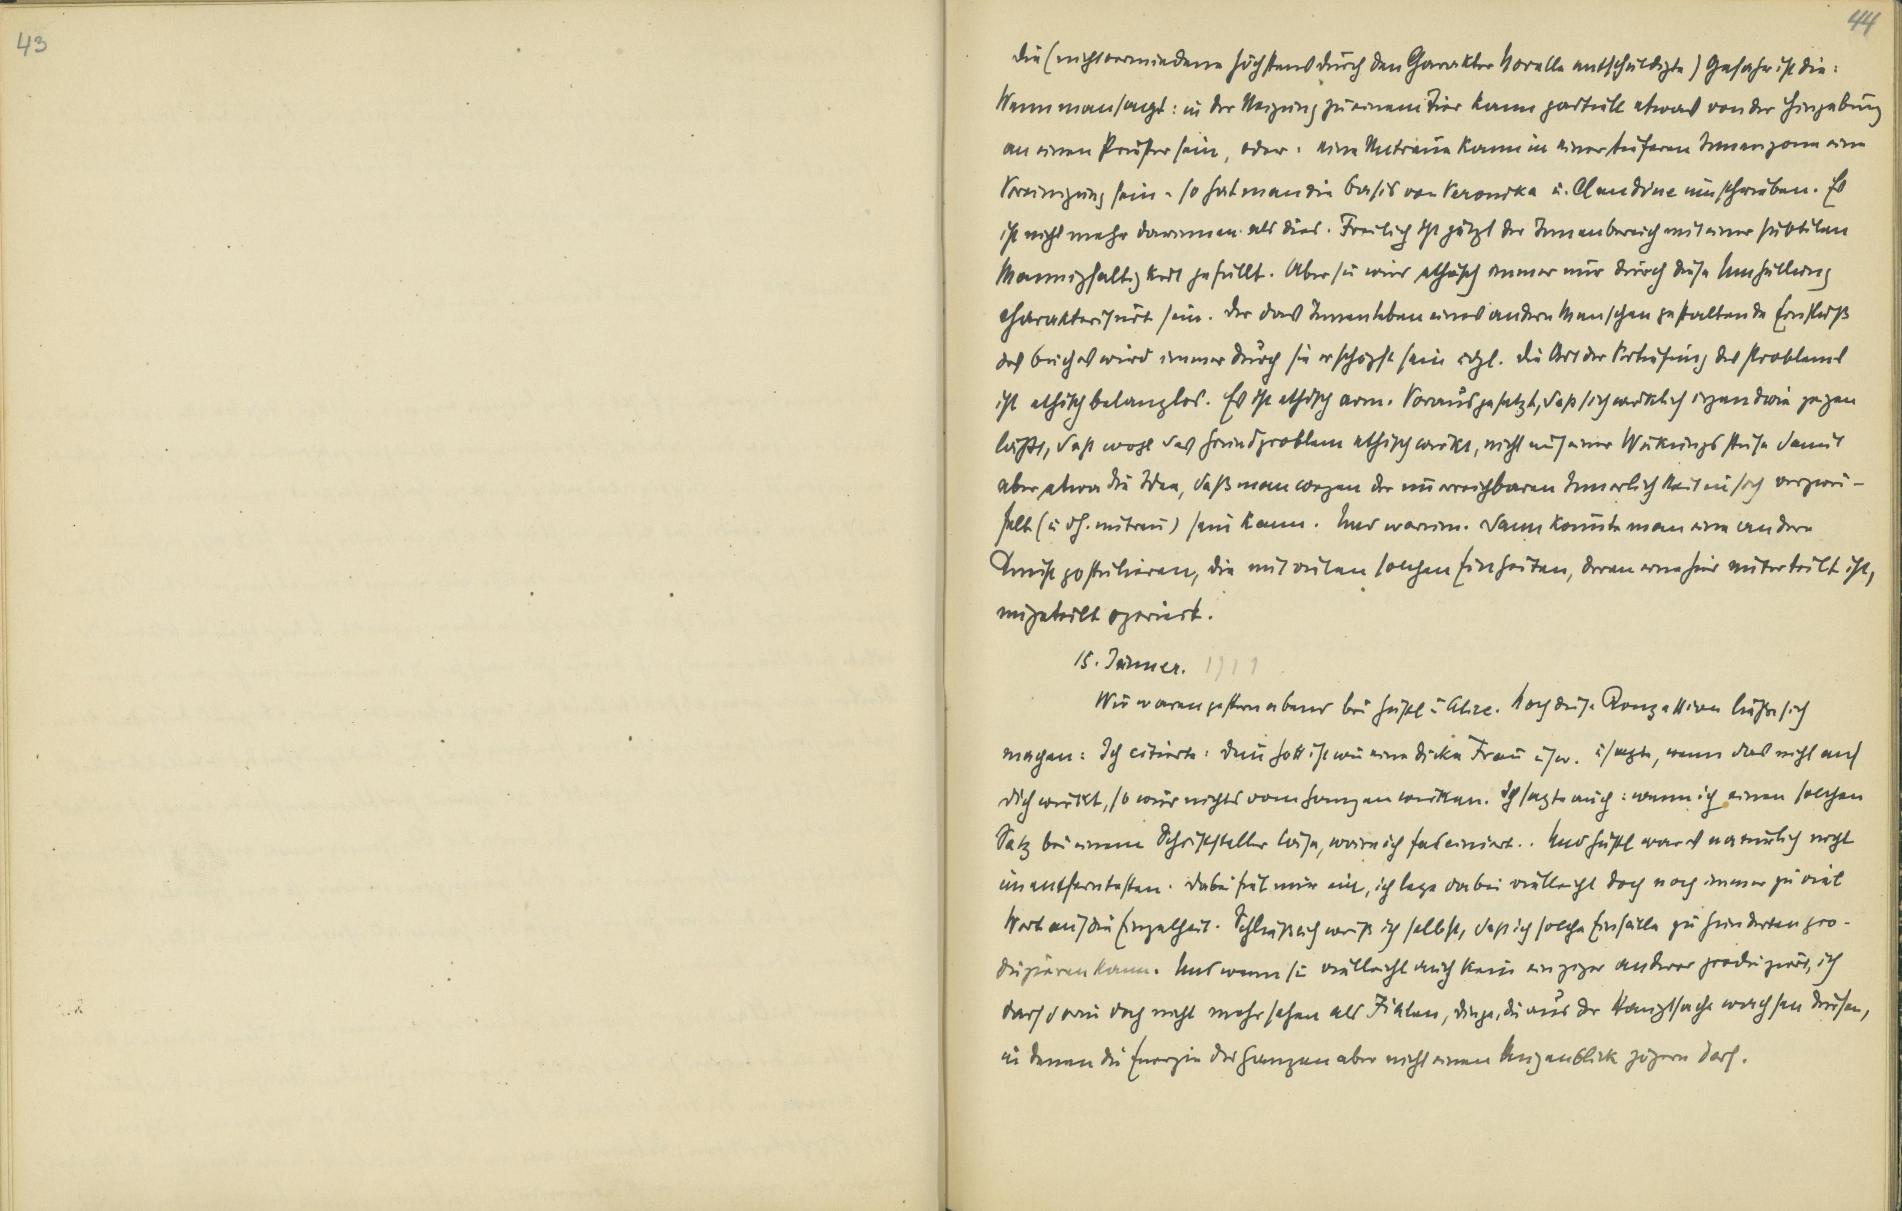 43
44
Die (nicht vermiedene höchstens durch den Charakter Novelle entschuldigte) Gefahr ist die:
Wenn man sagt: in der Neigung zu einem Tier kann partiell etwas von der Hingebung
an einen Priester sein, oder: eine Untreue kann in einer tieferen Innenzone eine
Vereinigung sein – so hat man die Basis von Veronika u. Claudine umschrieben. Es
ist nicht mehr darinnen als dies. Freilich ist jetzt der Innenbereich mit einer subtilen
Mannigfaltigkeit gefüllt. Aber sie wird ethisch immer nur durch diese Umhüllung
charakterisiert sein. Der das Innenleben eines andern Menschen gestaltende Einfluß
des Buches wird immer durch sie erschöpft sein udgl. Die Art der Vertiefung des Problems
ist ethisch belanglos. Es ist ethisch arm. Vorausgesetzt, daß sich wirklich irgendwie zeigen
läßt, daß wohl das Grundproblem ethisch wirkt, nicht auf einer Wirkungsstufe damit
aber etwa die Idee, daß man wegen der unerreichbaren Innerlichkeit in sich verzwei-
felt (u dh. untreu) sein kann. Und warum. Dann könnte man eine andere
Kunst postulieren, die mit vielen solchen Einheiten, deren eine hier unterteilt ist,
ungeteilt operiert.
15. Jänner. 1911
Wir waren gestern abend bei Gustl u Alice. Noch diese Konzession ließe sich
machen: Ich citierte: dein Gott ist wie eine dicke Frau usw. u sagte, wenn das nicht auf
dich wirkt, so wird nichts vom Ganzen wirken. Ich sagte auch: wenn ich einen solchen
Satz bei einem Schriftsteller läse, wäre ich fasciniert.. Und Gustl war es natürlich nicht
im entferntesten. Dabei fiel mir ein, ich lege dabei vielleicht doch noch immer zu viel
Wert auf die Einzelheit. Schließlich weiß ich selbst, daß ich solche Einfälle zu hunderten pro-
duzieren kann. Und wenn sie vielleicht auch kein einziger anderer produziert, ich
darf darin doch nicht mehr sehen als Zieraten, Dinge, die aus der Hauptsache wachsen dürfen,
in denen die Energie des Ganzen aber nicht einen Augenblick zögern darf.